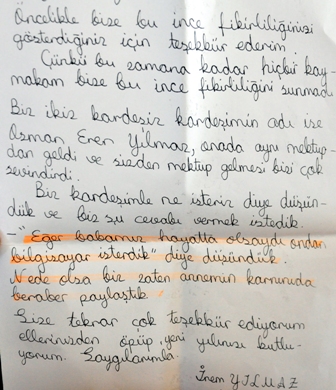 Öncelikle bize bu ince fikirliliğinizi
gösterdiğiniz için teşekkür ederim
Çünkü bu zamana kadar hiçbir kay-
makam bize bu ince fikirliliğini sunmadı
Biz ikiz kardeşiz kardeşimin adı ise
Osman Eren Yılmaz, onada aynı mektup-
dan geldi ve sizden mektup gelmesi bizi çok
sevindirdi.
Biz kardeşimle ne isteriz diye düşün-
dük ve biz şu cevabı vermek istedik.
-"Eğer babamız hayatta olsaydı ondan
bilgisayar isterdik" diye düşündük.
Nede olsa biz zaten annemin karnında
beraber paylaştık.
Size tekrar çok teşekkür ediyorum
ellerinizden öpüp, yeni yılınızı kutlu-
yorum. Saygılarımla.
İrem YILMAZ